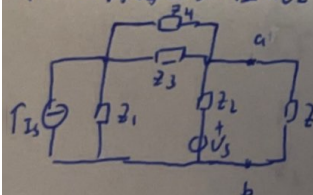 Z4
a
Z3
Is
Z1
Z2
+
Us
Z
b